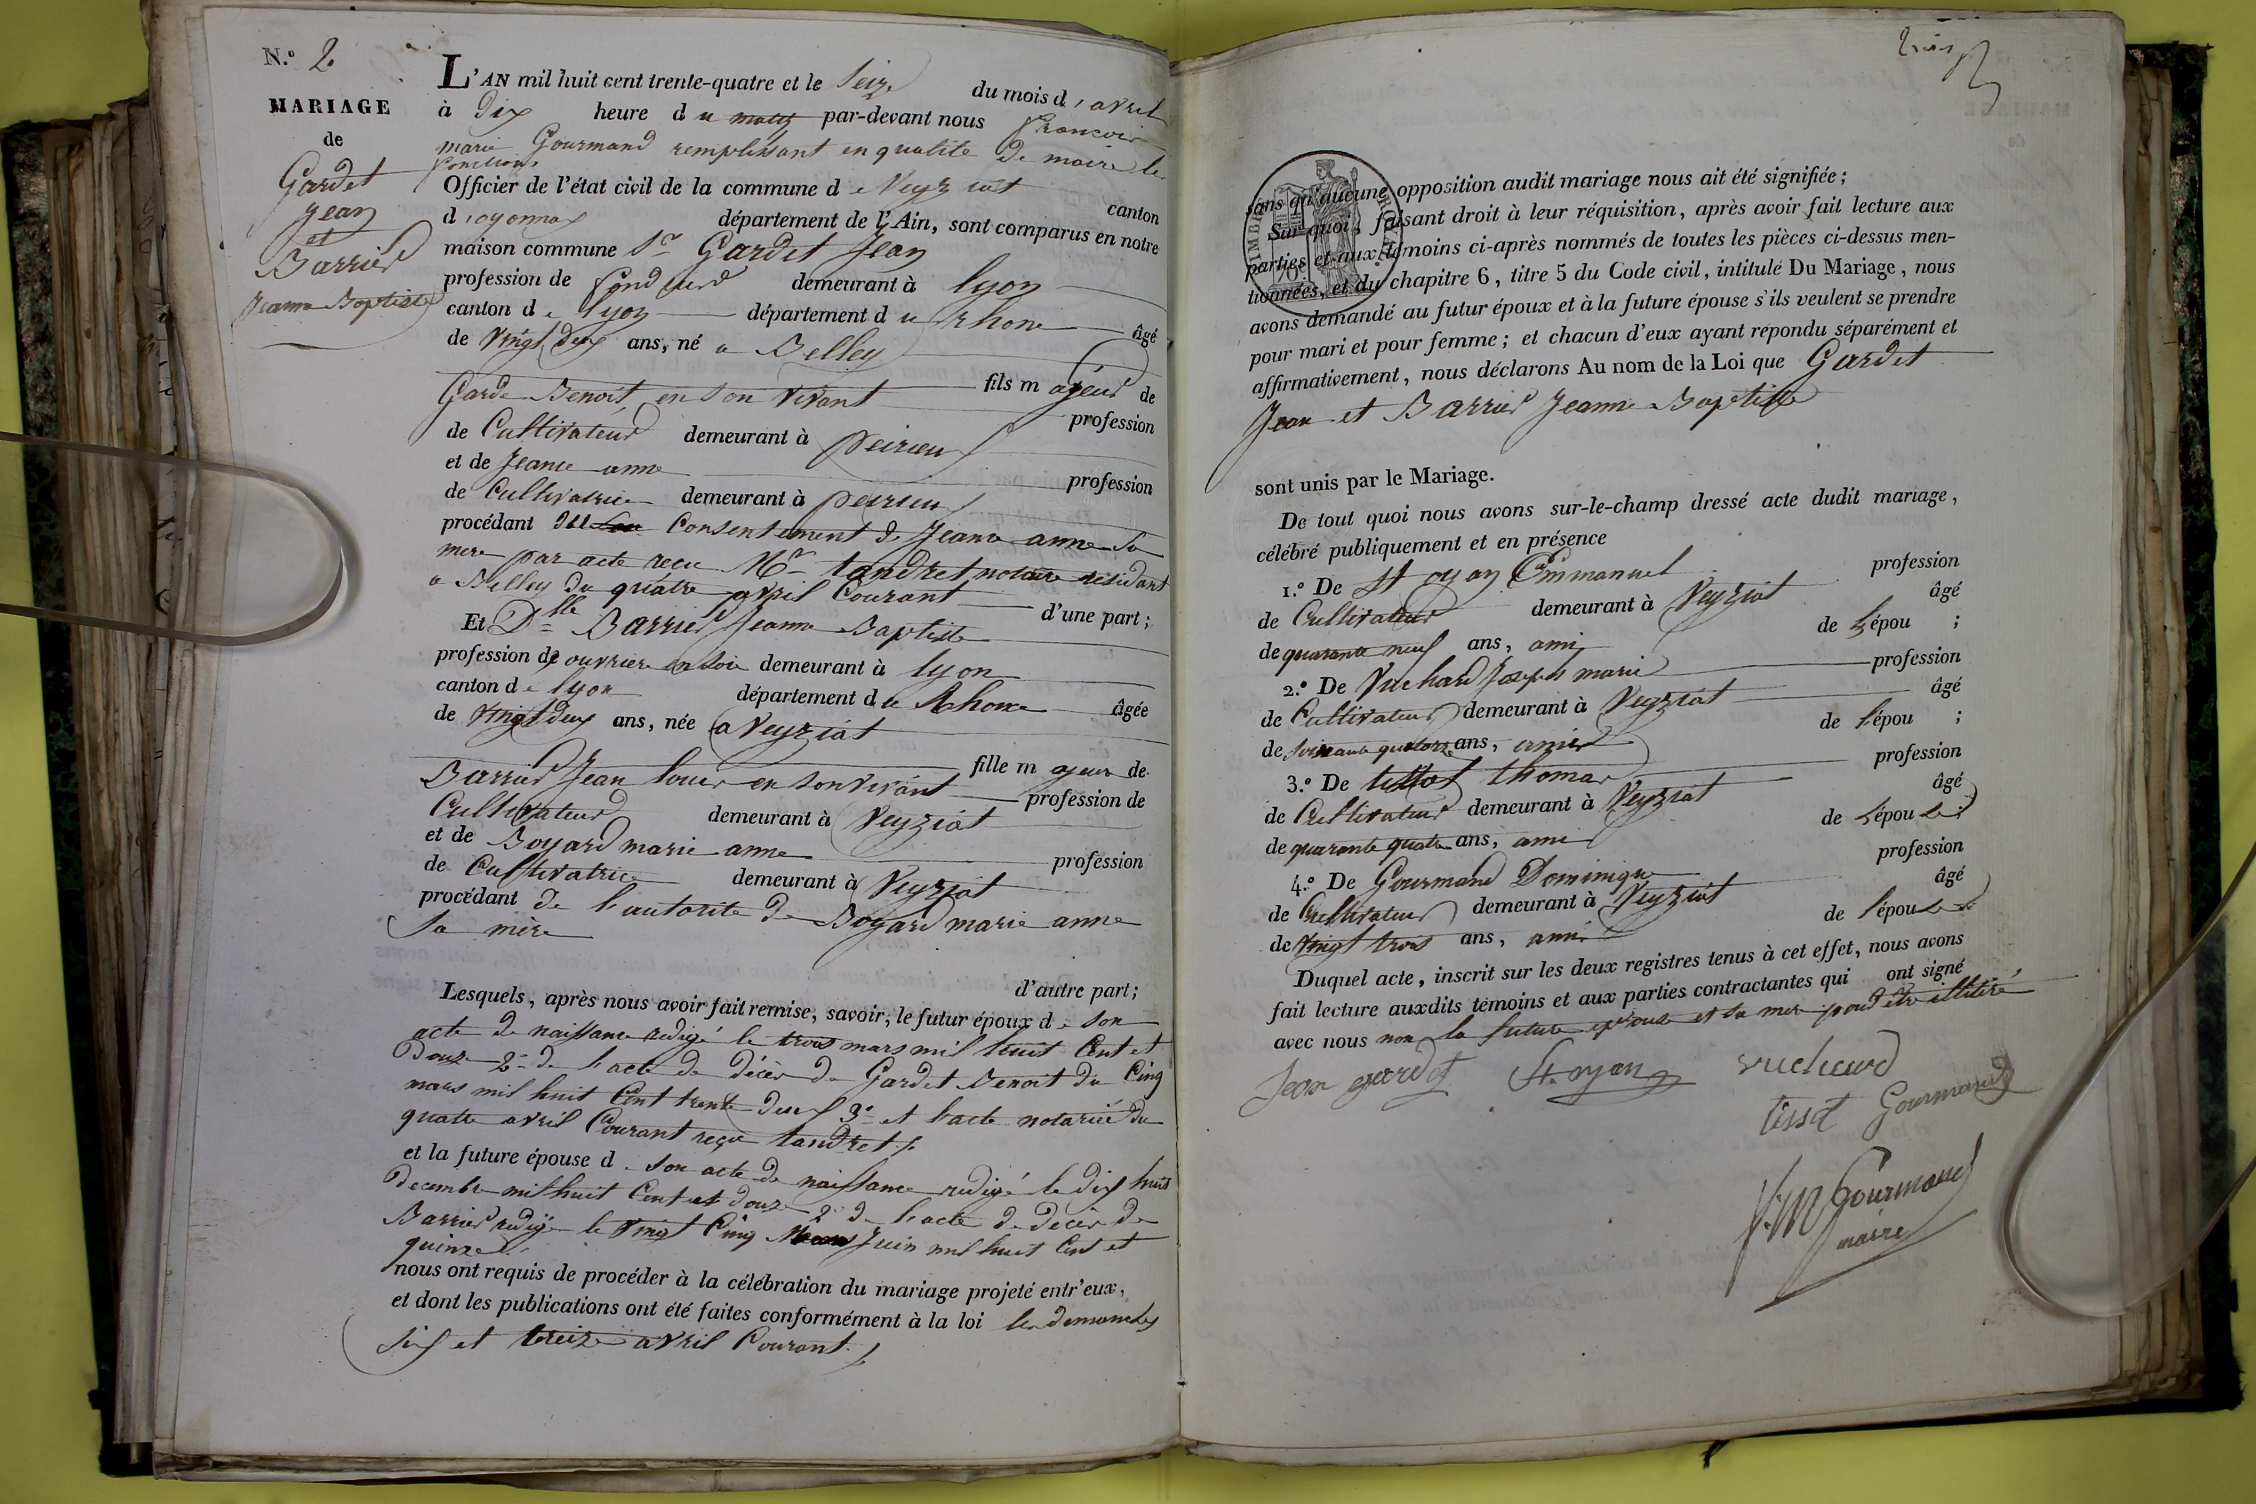 N.º 2
MARIAGE
de
Gardet
Jean
et
Barrier
Jeanne Baptiste
L'AN mil huit cent trente-quatre et le Seize du mois d'avril
à Dix heure du matin par-devant nous françois
marie Gourmand remplissant en qualité de maire les
fonctions
Officier de l'état civil de la commune de Veyziat canton
d'oyonnax département de l'Ain, sont comparus en notre
maison commune Sr Gardet Jean
profession de fondeur demeurant à lyon
canton de lyon département du rhone âgé
de vingt deux ans, né a Belley
fils majeur de
Garde Benoit, en son vivant profession
de Cultivateur demeurant à peirieu
et de Jeanne anne profession
de Cultivatrice demeurant à peirieu
procédant du Consentement de Jeanne anne sa
mere par acte recu Mr tandret notaire résidant
a Belley du quatre avril Courant d'une part;
Et Dlle Barrier Jeanne Baptiste
profession de ouvriere en soie demeurant à lyon
canton de lyon département du Rhone âgée
de vingt deux ans, née a Veyziat
fille majeur de
Barrier Jean louis en son vivant profession de
Cultivateur demeurant à Veyziat
et de Boyard marie anne profession
de Cultivatrice demeurant à Veyziat
procédant de l'autorité de Boyard marie anne
sa mère
d'autre part;
Lesquels, après nous avoir fait remise, savoir, le futur époux de son
acte de naissance redigé le trois mars mil huit Cent et
Douze 2º de l'acte de décès de Gardet Benoit du Cinq
mars mil huit Cent trente deux 3º et l'acte notarié du
quatre avril Courant reçu tandret
et la future épouse de son acte de naissance redigé le dix huit
Decembre mil huit Cent et douze 2º de l'acte de décès de
Barrier redigé le vingt Cinq Juin mil huit Cent et
quinze
nous ont requis de procéder à la célébration du mariage projeté entr'eux,
et dont les publications ont été faites conformément à la loi les dimanches
six et treize avril Courant
sans qu'aucune opposition audit mariage nous ait été signifiée;
Sur quoi, faisant droit à leur réquisition, après avoir fait lecture aux
parties et aux témoins ci-après nommés de toutes les pièces ci-dessus men-
tionnées, et du chapitre 6, titre 5 du Code civil, intitulé Du Mariage, nous
avons demandé au futur époux et à la future épouse s'ils veulent se prendre
pour mari et pour femme; et chacun d'eux ayant repondu séparément et
affirmativement, nous déclarons Au nom de la Loi que Gardet
Jean et Barrier Jeanne Baptiste
sont unis par le Mariage.
De tout quoi nous avons sur-le-champ dressé acte dudit mariage,
célébré publiquement et en présence
1.º De St oyan Emmanuel profession
de Cultivateur demeurant à Veyziat âgé
de quarante neuf ans, ami de l'épou ;
2.º De Vuchard Joseph marie profession
de Cultivateur demeurant à Veyziat âgé
de soixante quatorze ans, ami de l'épou ;
3.º De tissot thomas profession
de Cultivateur demeurant à Veyziat âgé
de quarante quatre ans, ami de l'épouse
4.º De Gourmand Dominique profession
de Cultivateur demeurant à Veyziat âgé
de vingt trois ans, ami de l'épouse
Duquel acte, inscrit sur les deux registres tenus à cet effet, nous avons
fait lecture auxdits témoins et aux parties contractantes qui ont signé
avec nous non la future epouse et sa mere pour être illitéré
Jean gardet St oyan vuchard
tissot Gourmand
f. M Gourmand
maire